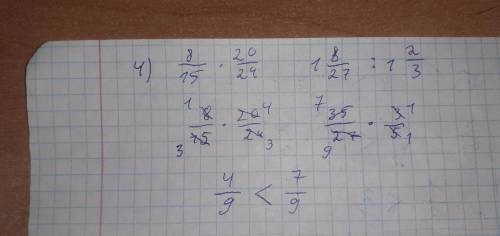 4) 8/15 · 20/24 1 8/27 : 1 2/3
1 8/15 3 · 20/24 4 3 7 35/27 9 · 3/5 1 1
4/9 < 7/9